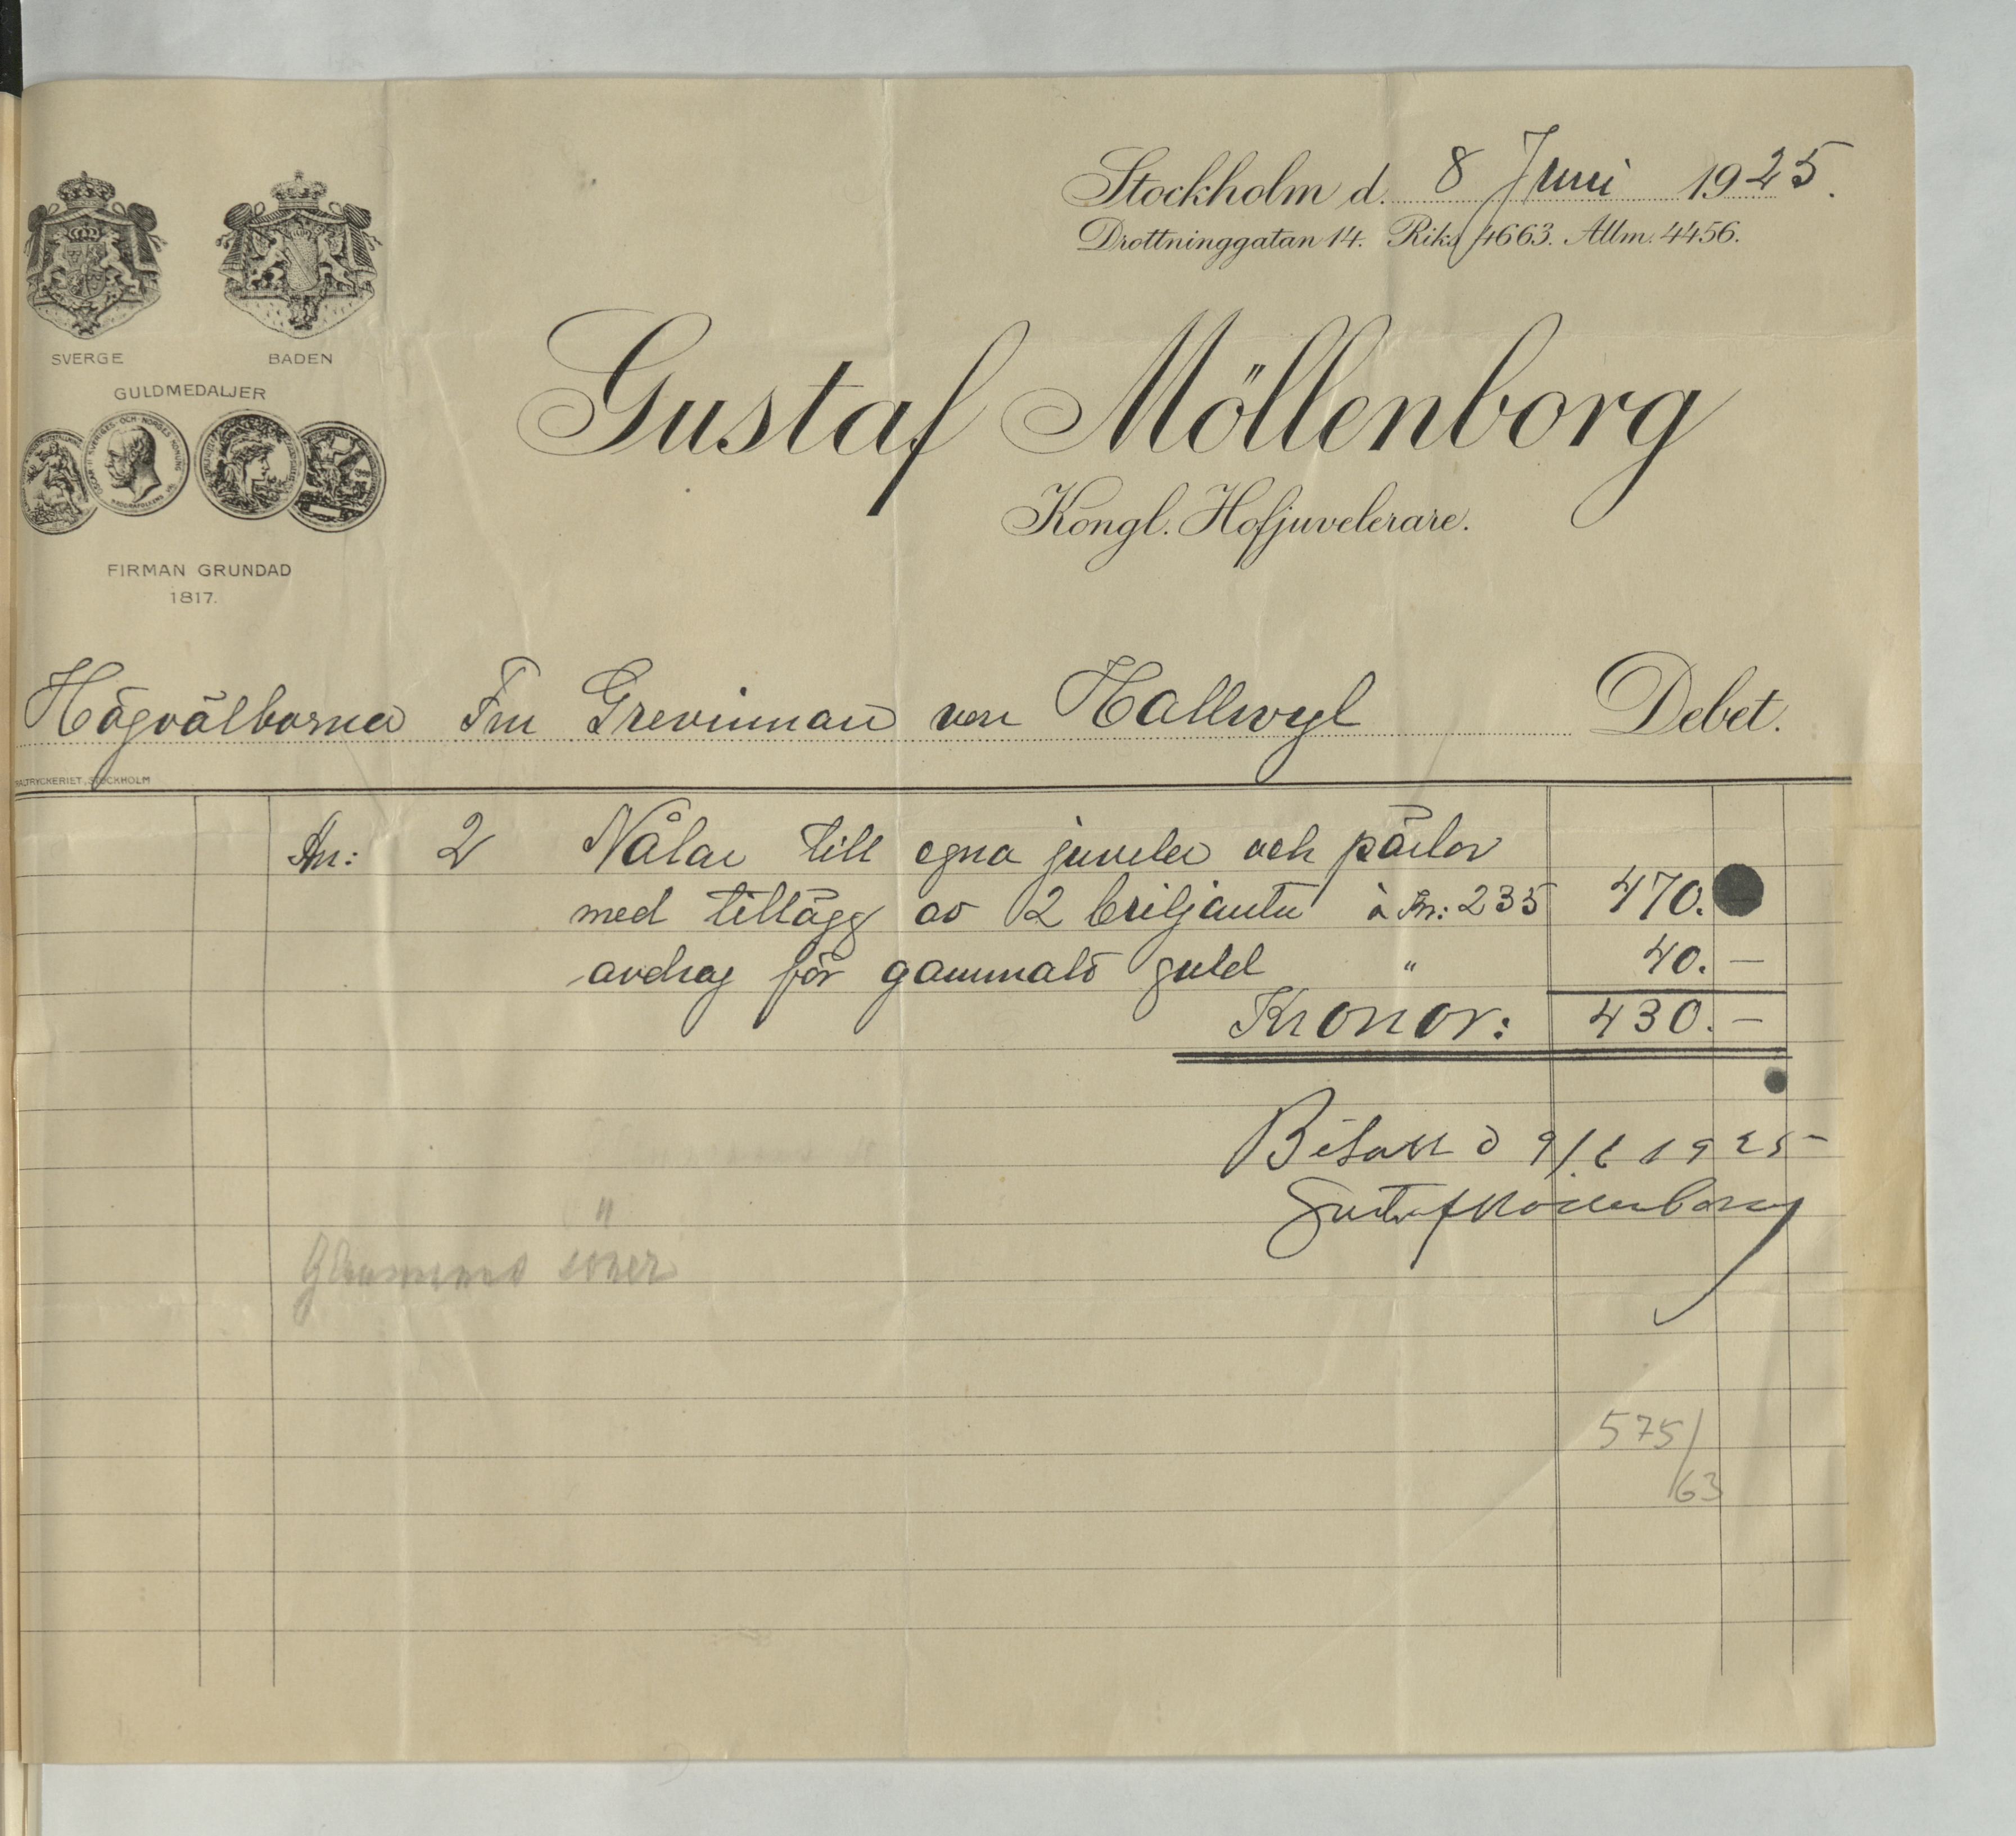 Stockholm d. 8 Juni 1925.
Drottninggatan 14. Riks 4663. Allm. 4456.
SVERGE BADEN
GULDMEDALJER
Gustaf Möllenborg
Kongl. Hofjuvelerare.
FIRMAN GRUNDAD
1817.
Högvälborna Fru Grevinnan von Hallwyl Debet.
RALTRYCKERIET, STOCKHOLM
2 Nålar till egna juveler och pärlor
med tillägg av 2 briljanter à Kr: 235 470.
avdrag för gammalt guld " 40. —
Kronor: 430. —
Betalt d 9/6 1925
Gustaf Möllenborg
"
söner
575/
63